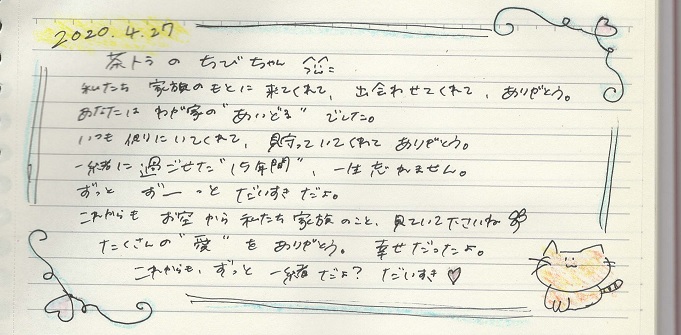 2020.4.27
茶トラの ちびちゃん
私たち 家族のもとに 来てくれて、出会わせてくれて、ありがとう。
あなたは わが家の"あいどる"でした。
いつも 側りにいてくれて、見守っていてくれて ありがとう。
一緒に過ごせた"15年間"、一生忘れません。
ずっと ずーっと だいすきだよ。
これからも お空から 私たち 家族のこと、見ていてくださいね
たくさんの"愛"を ありがとう。幸せだったよ。
これからも、ずっと 一緒だよ? だいすき♡